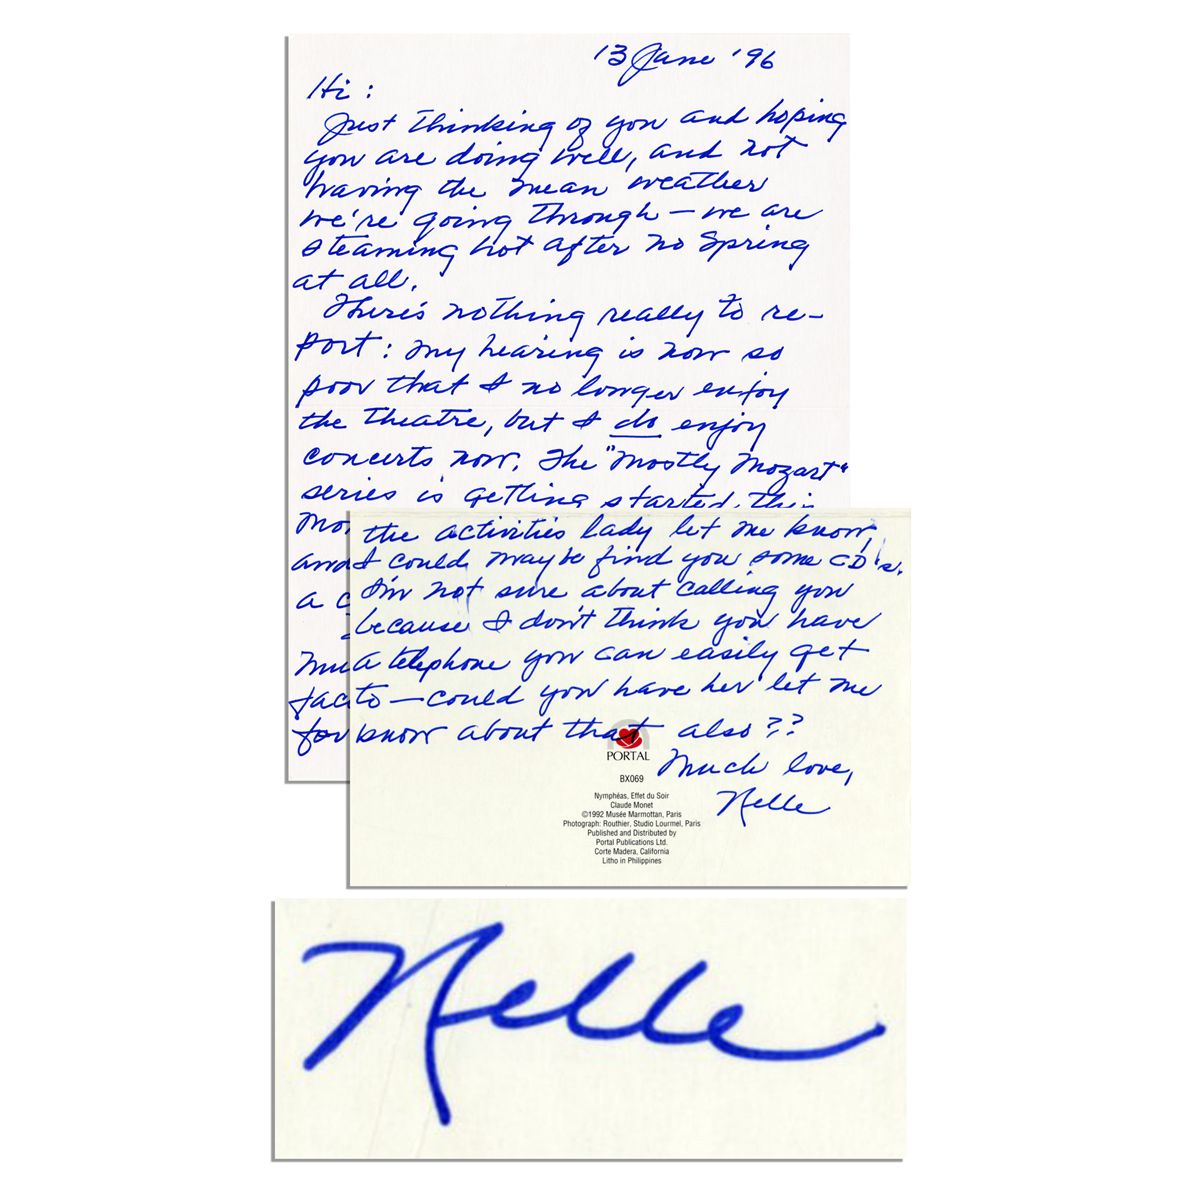 13 June '96
Hi:
Just thinking of you and hoping
you are doing well, and not
having the mean weather
we're going through — we are
steaming hot after no Spring
at all.
There's nothing really to re-
port: my hearing is now so
poor that I no longer enjoy
the theatre, but I do enjoy
concerts now. The "Mostly Mozart"
series is getting started, this
mo
and
a c
mu
fac
for
the activities lady let me know,
I could maybe find you some CD's.
I'm not sure about calling you
because I don't think you have
a telephone you can easily get
to — could you have her let me
know about that also??
Much love,
Nelle
PORTAL
BX069
Nymphéas, Effet du Soir
Claude Monet
©1992 Musée Marmottan, Paris
Photograph: Routhier, Studio Lourmel, Paris
Published and Distributed by
Portal Publications Ltd.
Corte Madera, California
Litho in Philippines
Nelle